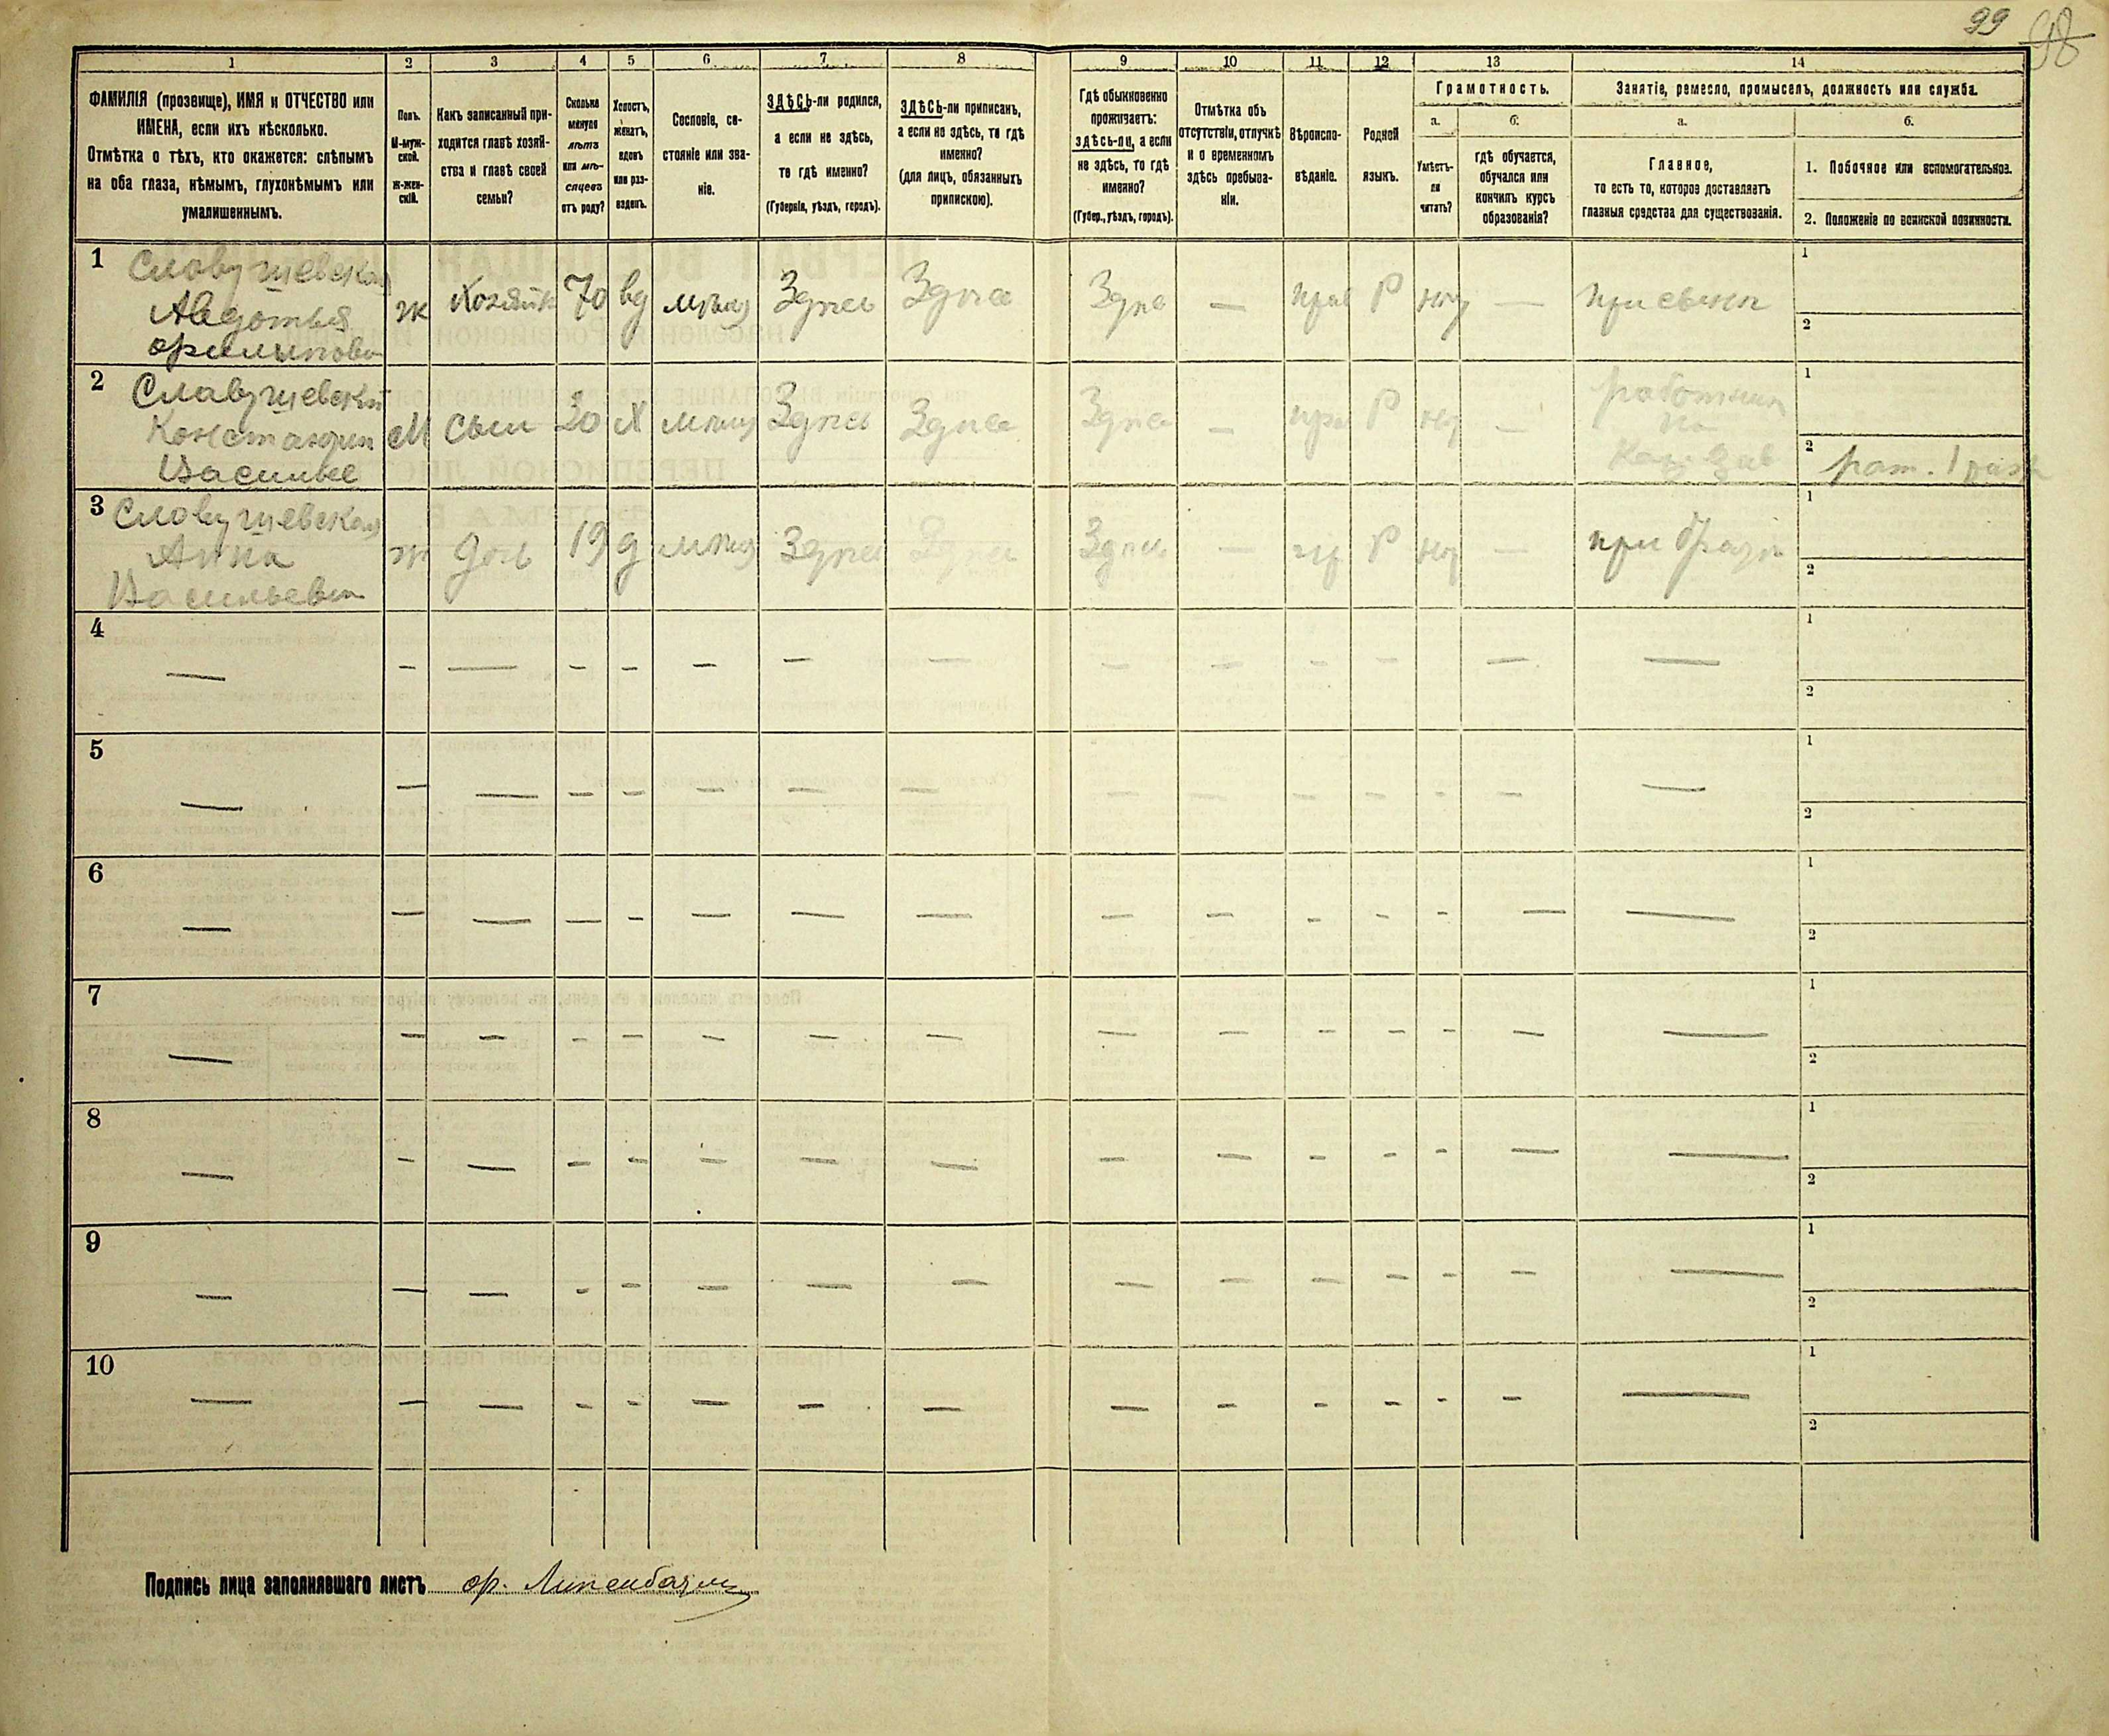 99 98
1 2 3 4 5 6 7 8 9 10 11 12 13 14
ФАМИЛІЯ (прозвище), ИМЯ и ОТЧЕСТВО или
ИМЕНА, если ихъ нѣсколько.
Отмѣтка о тѣхъ, кто окажется: слѣпымъ
на оба глаза, нѣмымъ, глухонѣмымъ или
умалишеннымъ.
Полъ.
М-муж-
ской.
Ж-жен-
скій.
Какъ записанный при-
ходится главѣ хозяй-
ства и главѣ своей
семьи?
Сколько
минуло
лѣтъ
или мѣ-
сяцевъ
отъ роду?
Холостъ,
женатъ,
вдовъ
или раз-
веденъ.
Сословіе, со-
стояніе или зва-
ніе.
ЗДѢСЬ-ли родился,
а если не здѣсь,
то гдѣ именно?
(Губернія, уѣздъ, городъ).
ЗДѢСЬ-ли приписанъ,
а если не здѣсь, то гдѣ
именно?
(для лицъ, обязанныхъ
припискою).
Гдѣ обыкновенно
проживаетъ:
здѣсь-ли, а если
не здѣсь, то гдѣ
именно?
(Губер., уѣздъ, городъ).
Отмѣтка объ
отсутствіи, отлучкѣ
и о временномъ
здѣсь пребыва-
ніи.
Вѣроиспо-
вѣданіе.
Родной
языкъ.
Грамотность.
а.
Умѣетъ-
ли
читать?
б.
гдѣ обучается,
обучался или
кончилъ курсъ
образованія?
Занятіе, ремесло, промыселъ, должность или служба.
а.
Главное,
то есть то, которое доставляетъ
главныя средства для существованія.
б.
1. Побочное или вспомогательное.
2. Положеніе по воинской повинности.
1 Славущевская
Авдотья
Филипова
ж Хозяйк 70 вд мѣщ Здѣсь Здѣсь Здѣ — прав Р нѣ — при сынѣ
1
2
2 Славущевскій
Константин
Василье
М Сын 20 Х мѣщ Здѣсь Здѣсь Здѣс — пра Р нѣ — работник
на
1
2 рат. 1 раз
3 Славущевская
Анна
Васильевна
ж дочь 19 д мѣщ Здѣсь Здѣсь Здѣсь — пр Р нѣ — при братѣ
1
2
4 — — — — — — — — — — — — — —
1
2
5 — — — — — — — — — — — — — — —
1
2
6 — — — — — — — — — — — — — — —
1
2
7 — — — — — — — — — — — — — — —
1
2
8 — — — — — — — — — — — — — — —
1
2
9 — — — — — — — — — — — — — — —
1
2
10 — — — — — — — — — — — — — — —
1
2
Подпись лица заполнявшаго листъ